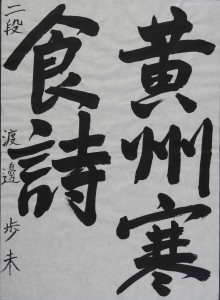 黄州寒
食詩
二段 渡邉 歩未